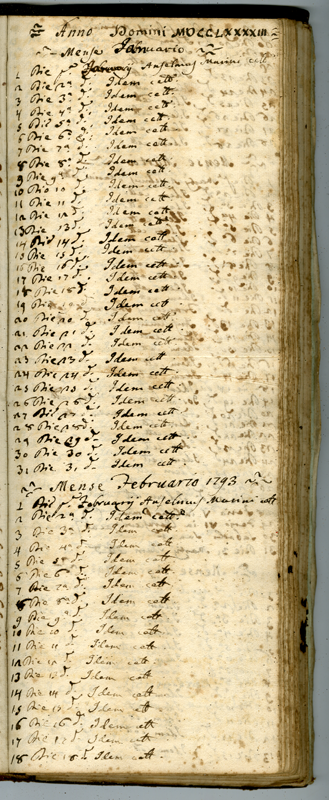 Anno Domini MDCCLXXXXIII
Mense Januario
1 Die pa Januarij Anselmus Marini cett
2 Die 2a d. Idem cett
3 Die 3a d. Idem cett
4 Die 4a d. Idem cett
5 Die 5a d. Idem cett
6 Die 6a d. Idem cett
7 Die 7a d. Idem cett
8 Die 8a d. Idem cett
9 Die 9a d. Idem cett
10 Die 10 d. Idem cett
11 Die 11 d. Idem cett
12 Die 12 d. Idem cett
13 Die 13 d. Idem cett
14 Die 14 d. Idem cett
15 Die 15 d. Idem cett
16 Die 16 d. Idem cett
17 Die 17 d. Idem cett
18 Die 18 d. Idem cett
19 Die 19 d. Idem cett
20 Die 20 d. Idem cett
21 Die 21 d. Idem cett
22 Die 22 d. Idem cett
23 Die 23 d. Idem cett
24 Die 24 d. Idem cett
25 Die 25 d. Idem cett
26 Die 26 d. Idem cett
27 Die 27 d. Idem cett
28 Die 28 d. Idem cett
29 Die 29 d. Idem cett
30 Die 30 d. Idem cett
31 Die 31 d. Idem cett
Mense Februario 1793
1 Die pa Februarij Anselmus Marini cett
2 Die 2a d. Idem cett
3 Die 3a d. Idem cett
4 Die 4a d. Idem cett
5 Die 5a d. Idem cett
6 Die 6a d. Idem cett
7 Die 7a d. Idem cett
8 Die 8a d. Idem cett
9 Die 9a d. Idem cett
10 Die 10 d. Idem cett
11 Die 11 d. Idem cett
12 Die 12 d. Idem cett
13 Die 13 d. Idem cett
14 Die 14 d. Idem cett
15 Die 15 d. Idem cett
16 Die 16 d. Idem cett
17 Die 17 d. Idem cett
18 Die 18 d. Idem cett